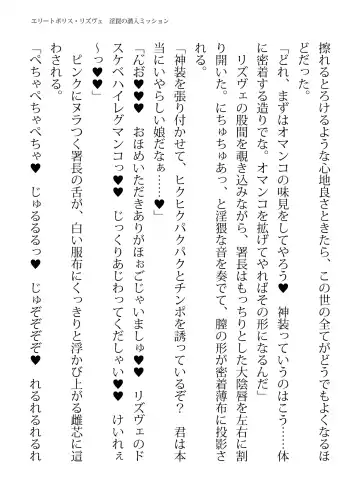 エリートポリス・リズヴェ　淫罠の潜入ミッション
擦れるとろけるような心地良さときたら、この世の全てがどうでもよくなるほ
「どれ、まずはオマンコの味見をしてやろう♥　神装っていうのはこう……体
に密着する造りでな。オマンコを拡げてやればその形になるんだ」
リズヴェの股間を覗き込みながら、署長はもっちりとした大陰唇を左右に割
り開いた。にちゅちゅあっ、と淫猥な音を奏でて、膣の形が密着薄布に投影さ
れる。
「神装を張り付かせて、ヒクヒクパクパクとチンポを誘っているぞ？　君は本
当にいやらしい娘だなぁ……♥」
「んお♥♥　おほめいただきありがほぉごじゃいましゅ♥♥　リズヴェのド
スケベハイレグマンコっ♥♥　じっくりあじわってくだしゃい♥♥　けいれぇ
～っ♥♥」
ピンクにヌラつく署長の舌が、白い服布にくっきりと浮かび上がる雌芯に這
わされる。
「ぺちゃぺちゃぺちゃ♥　じゅるるるっ♥　じゅぞぞぞぞ♥　れるれるれる